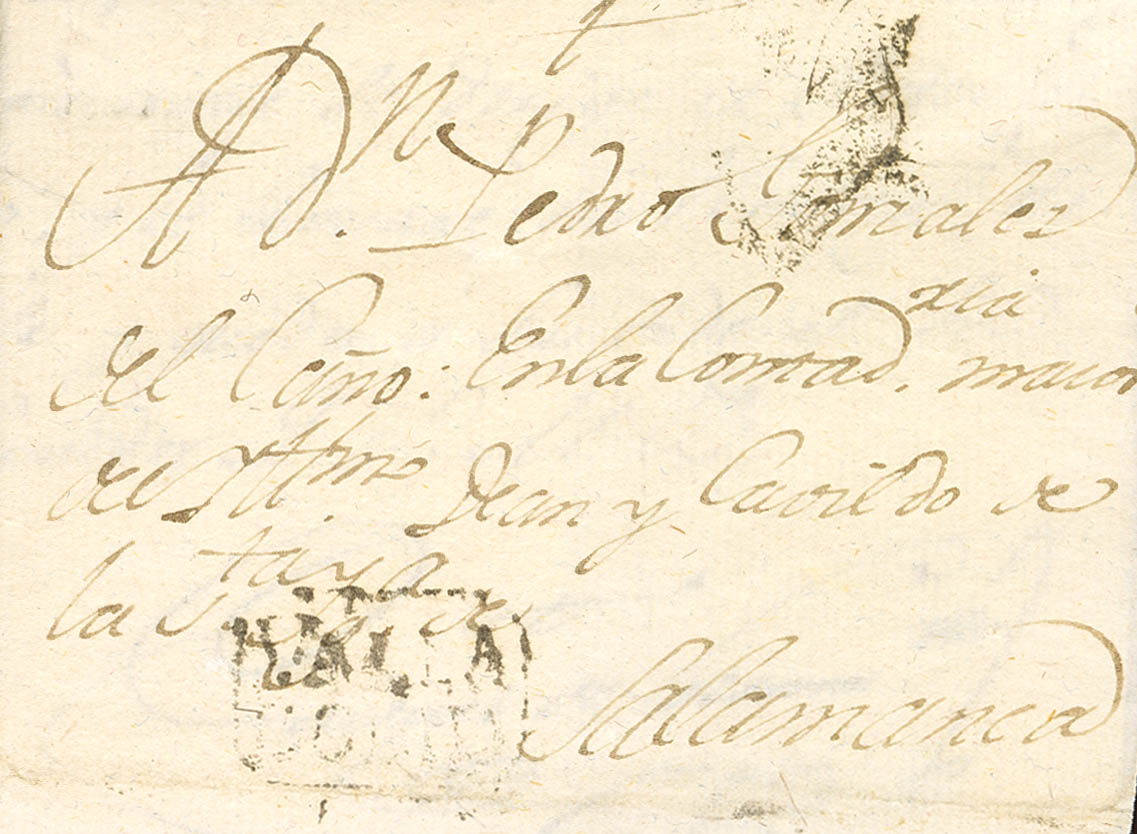 A D.n Pedro Gonzalez
del Caño: En la Contad.ria maior
del Ill.mo Dean y Cavildo de
la S.ta Ygla de
VALLA
DOLID
Salamanca